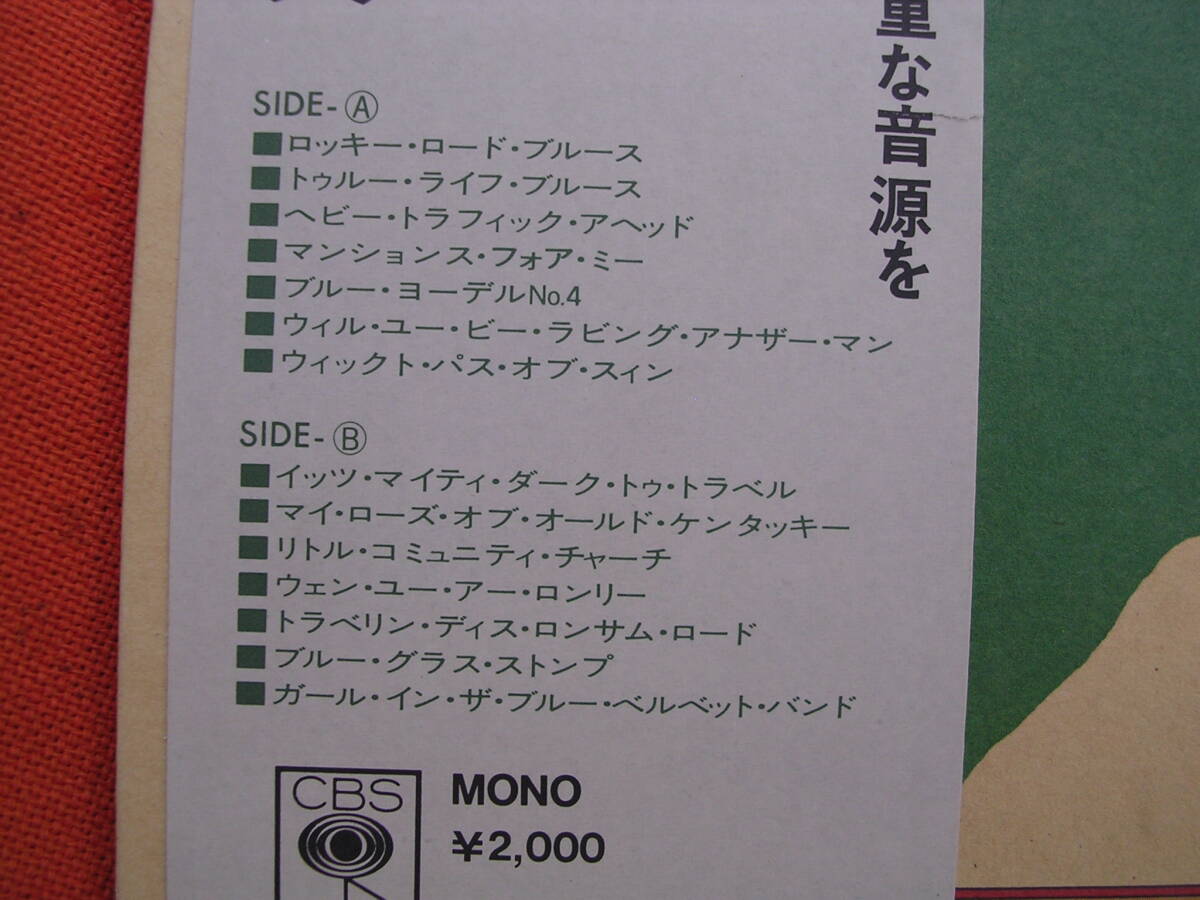 重な音源を
SIDE-Ⓐ
■ロッキー・ロード・ブルース
■トゥルー・ライフ・ブルース
■ヘビー・トラフィック・アヘッド
■マンションス・フォア・ミー
■ブルー・ヨーデルNo.4
■ウィル・ユー・ビー・ラビング・アナザー・マン
■ウィックト・パス・オブ・スィン
SIDE-Ⓑ
■イッツ・マイティ・ダーク・トゥ・トラベル
■マイ・ローズ・オブ・オールド・ケンタッキー
■リトル・コミュニティ・チャーチ
■ウェン・ユー・アー・ロンリー
■トラベリン・ディス・ロンサム・ロード
■ブルー・グラス・ストンプ
■ガール・イン・ザ・ブルー・ベルベット・バンド
CBS
MONO
¥2,000